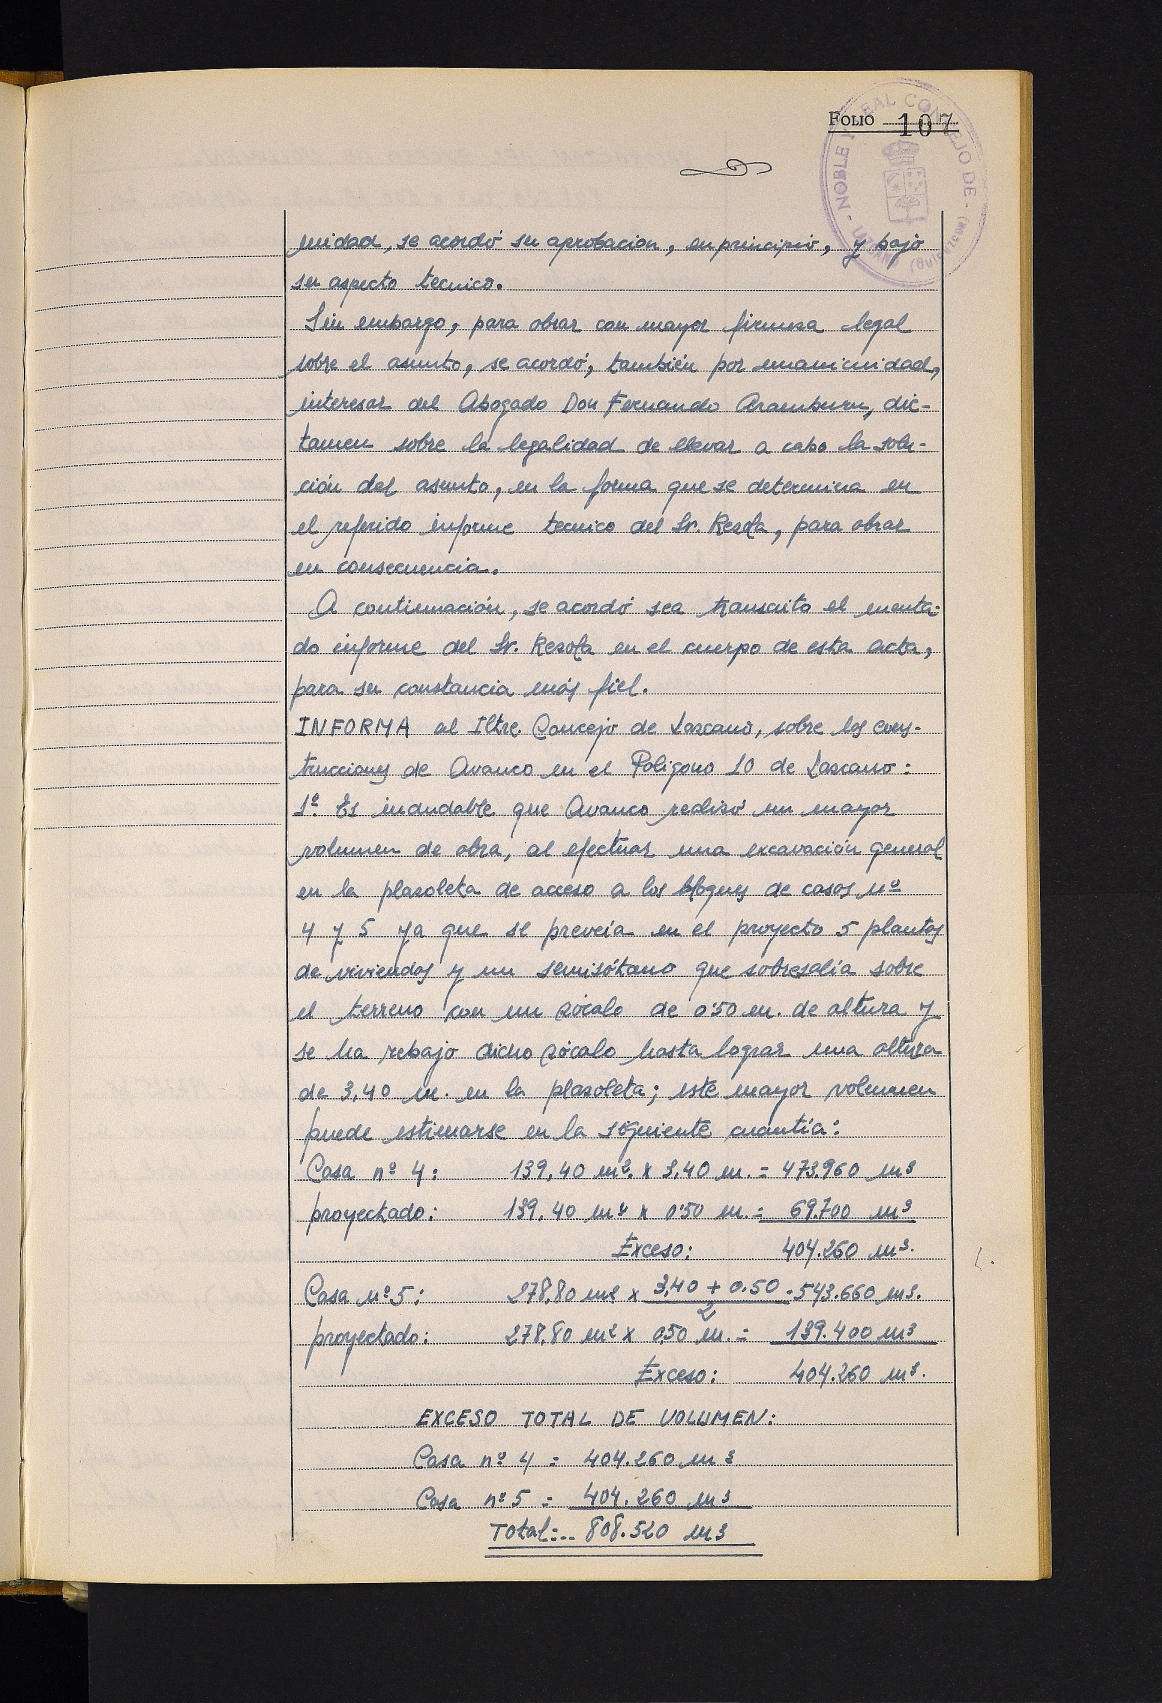 FOLIO 107
NOBLE Y LEAL CONCEJO DE - LAZCANO (Guipuzcoa)
nidad, se acordó su aprobacion, en principio, y bajo
su aspecto tecnico.
Sin embargo, para obrar con mayor firmeza legal
sobre el asunto, se acordó, también por unanimidad,
interesar del Abogado Don Fernando Aramburu, dic-
tamen sobre la legalidad de llevar a cabo la solu-
ción del asunto, en la forma que se determina en
el referido informe tecnico del Sr. Resola, para obrar
en consecuencia.
A continuación, se acordó sea transcrito el menta-
do informe del Sr. Resola en el cuerpo de esta acta,
para su constancia más fiel.
INFORMA al Iltre. Concejo de Lazcano, sobre las cons-
trucciones de Avanco en el Poligono 10 de Lazcano:
1º Es indudable que Avanco realizó un mayor
volumen de obra, al efectuar una excavación general
en la plazoleta de acceso a los bloques de casas nº
4 y 5 ya que se preveia en el proyecto 5 plantas
de viviendas y un semisótano que sobresalía sobre
el terreno con un zócalo de 0'50 m. de altura y
se ha rebajo dicho zócalo hasta lograr una altura
de 3,40 m. en la plazoleta; este mayor volumen
puede estimarse en la siguiente cuantía:
Casa nº 4: 139,40 m2. x 3,40 m. = 473.960 m3
proyectado: 139,40 m2 x 0'50 m. = 69.700 m3
Exceso: 404.260 m3.
Casa nº 5: 278,80 m2 x 3,40 + 0.50 = 543.660 m3.
2
proyectado: 278,80 m2 x 0,50 m. = 139.400 m3
Exceso: 404.260 m3.
EXCESO TOTAL DE VOLUMEN:
Casa nº 4 = 404.260 m3
Casa nº 5 = 404.260 m3
Total=.. 808.520 m3